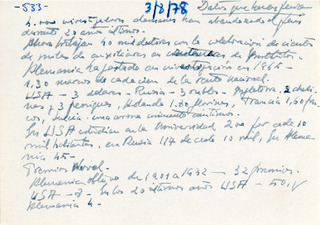 -533-
3/8/78
Datos que hacen pensar
4.000 investigadores alemanes han abandonado el país
durante 20 años últimos.
Ahora trabajan 40 mil doctores con la colaboración de cientos
de miles de auxiliares en de Institutos.
Alemania ha gastado en investigación en 1964 -
1,30 marcos de cada cien de la renta nacional.
USA - 3 dólares - Rusia - 3 rublos - Inglaterra, 2 cheli-
nes y 3 peniques, Holanda 1.80 florines, Francia 1,60 fran-
cos, Suecia - una corona cincuenta céntimos.
En USA estudian en la Universidad 200 por cada 10
mil habitantes, en Rusia 117 de cada 10 mil, En Alema-
nia 45 -
Premios Nobel -
Alemania obtuvo de 1901 a 1932 - 32 premios.
USA - 7 - En los 20 últimos años USA - 50, y
Alemania 4 -